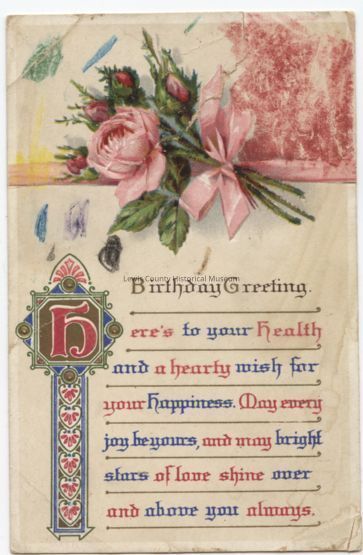 Lewis County Historical Museum
Birthday Greeting.
Here's to your Health
and a hearty wish for
your Happiness. May every
joy be yours, and may bright
stars of love shine over
and above you always.